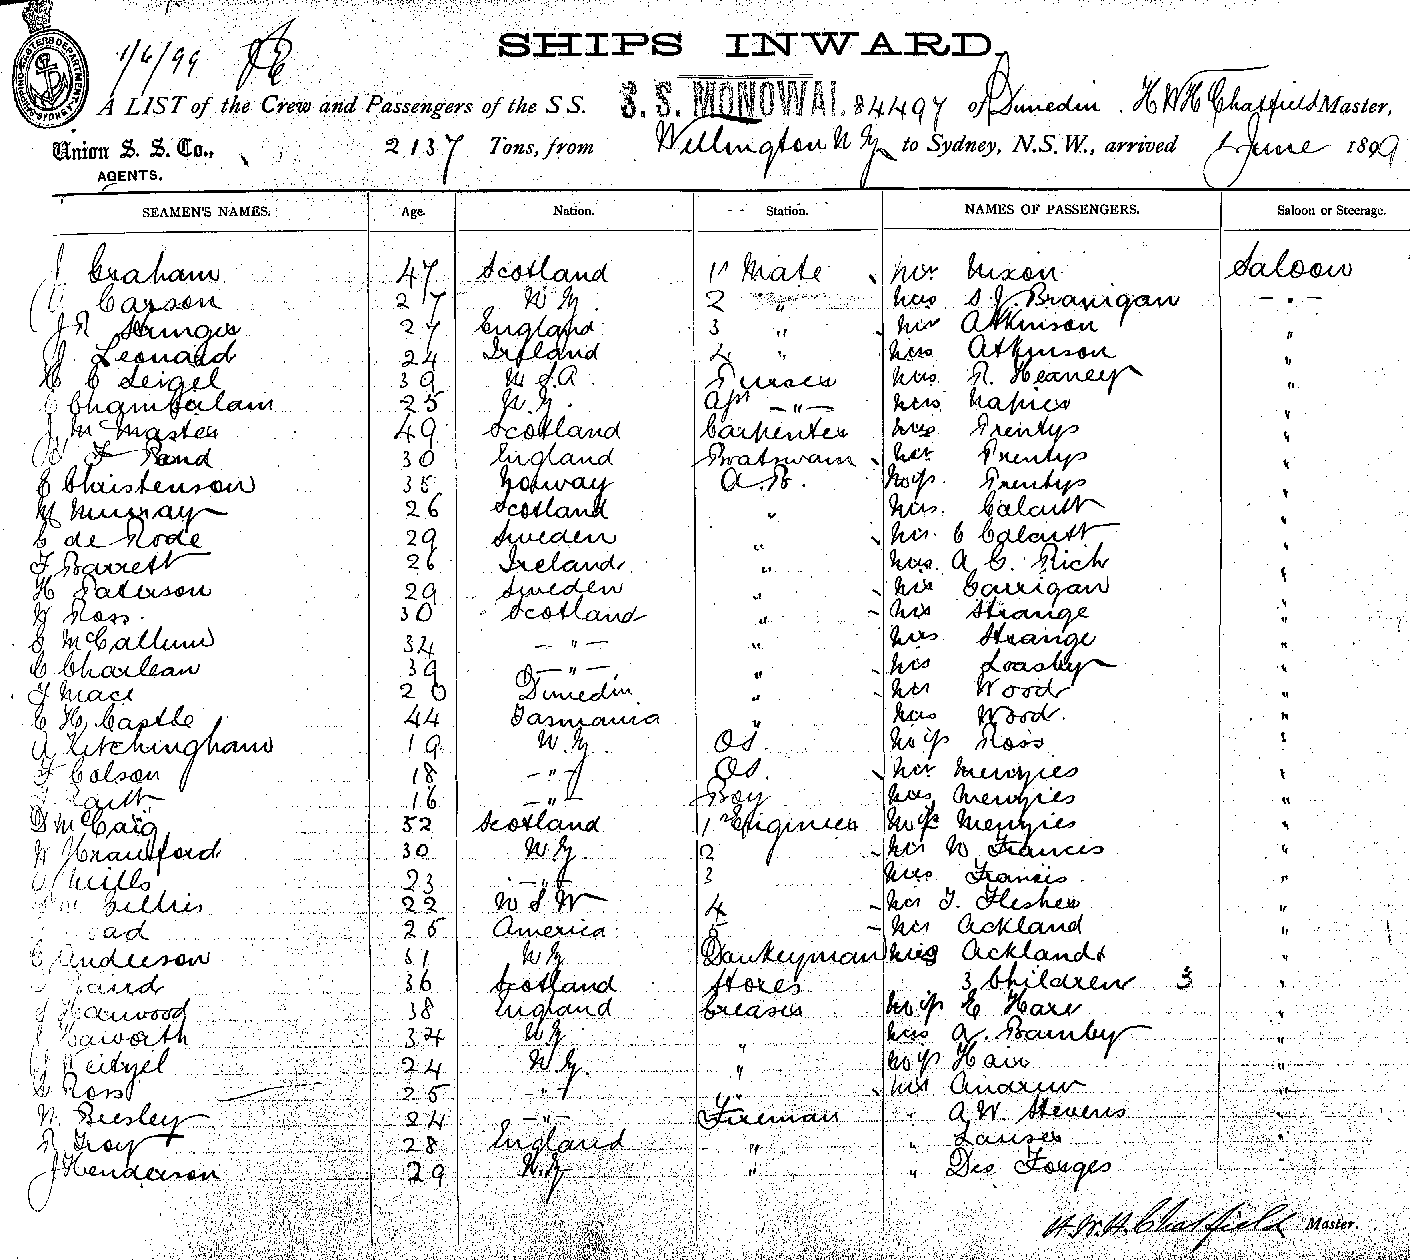 1/6/99
SHIPS INWARD.
A LIST of the Crew and Passengers of the S.S. S. S. MONOWAI. 84497 of Dunedin. H W H Chatfield Master,
Union S. S. Co., 2137 Tons, from Wellington N Z to Sydney, N.S.W., arrived 1 June 1899
AGENTS.
SEAMEN'S NAMES. Age. Nation. Station. NAMES OF PASSENGERS. Saloon or Steerage.
J Graham 47 Scotland 1st Mate Mr Nixon Saloon
Carson 27 N Z. 2 " Mrs S. J. Branigan — " —
J R 27 England 3 " Mr Atkinson "
J. Leonard 24 Ireland 4 " Mrs Atkinson "
C Seigel 39 U S A. Purser Mrs. R. Heaney "
C Chamberlain 25 N. Z. — " — Mrs Napier "
J McMaster 49 Scotland Carpenter Mrs Prentys "
F Pond 30 England Boatswain Mr Prentys "
C Christenson 35 Norway A. B. Miss. Prentys "
M Murray 26 Scotland " Mrs. Calcutt "
C de Rode 29 Sweden " Mr. C Calcutt "
F Barrett 26 Ireland " Mrs. A. C. Rich "
H Paterson 29 Sweden " Mr Carrigan "
W Ross. 30 Scotland " Mr Strange "
McCallum 34 — " — " Mrs Strange "
C Charlean 39 — " — " Mrs Loasby "
F Mace 20 Dunedin " Mr Wood "
C H Castle 44 Tasmania " Mrs Wood. "
A Kitchingham 19 N. Z. OS. Miss Ross "
F Colson 18 — " — OS. Mr Menzies "
16 — " — Boy Mrs Menzies "
D McCaig 52 Scotland 1st Engineer Miss Menzies "
W Crawford 30 N Z. 2 Mr W Francis "
Mills 23 — " — 3 Mrs Francis. "
Gillies 22 N S W 4 Mr F. Flesher "
25 America 5 Mr Ackland "
C Anderson 31 N Z Donkeyman Mrs Ackland & "
36 Scotland Stores 3 Children 3 "
J Harwood 38 England Greaser Miss E Hare "
Haworth 34 N Z " Mrs A. Barnby "
24 N. Z. " Miss Hare "
Ross 25 — " — " Mr Andrew "
W. Beesley 24 — " — Fireman " A W Stevens "
Troy 28 England " " "
J Henderson 29 N. Z " " Des Forges "
H. W. H. Chatfield Master.